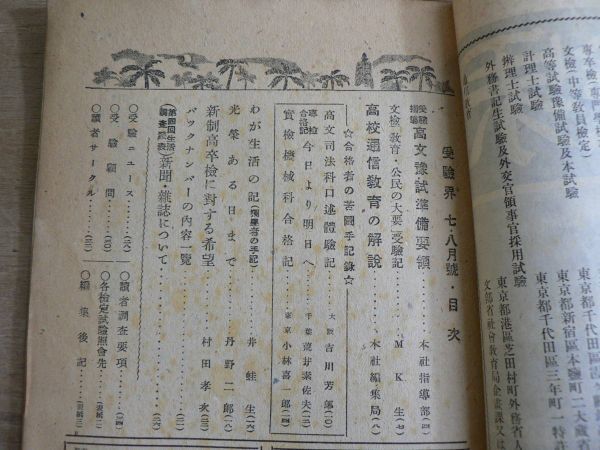 專卒檢(專門學校
文檢(中等教員檢定)
高等試驗豫備試驗及本試驗
計理士試驗
辨理士試驗
外務書記生試驗及外交官領事官採用試驗
東京都千代田區
東京都新宿區本鹽町二大藏省
東京都千代田區三年町一特許
東京都港區芝田村町外務省人
文部省社會教育局企畫課又は
受驗界 七・八月號・目次
受驗指導 高文豫試準備要領……本社指導部(四)
文檢教育・公民の大要 受驗記……MK生(七)
高校通信教育の解說……本社編集局(八)
☆合格者の苦鬪手記錄☆
高文司法科口述體驗記……大阪 吉川芳郎(一〇)
專檢合格記 今日より明日へ……千葉 蓮芽案佐夫(一三)
實檢機械科合格記……東京 小林喜一郎(一四)
わが生活の記(獨學者の手記)……井蛙生(一六)
光榮ある日まで……丹野二郎(一八)
新制高卒檢に對する希望……村田孝次(三三)
バックナンバーの內容一覽……(三二)
第四回生活調査發表 新聞・雜誌について……(二六)
◎受驗ニュース……(三〇)
◎受驗顧問……(三一)
◎讀者サークル……(三二)
◎讀者調査要項……(二四)
◎各檢定試驗照會先……(表紙二)
◎編集後記……(表紙三)